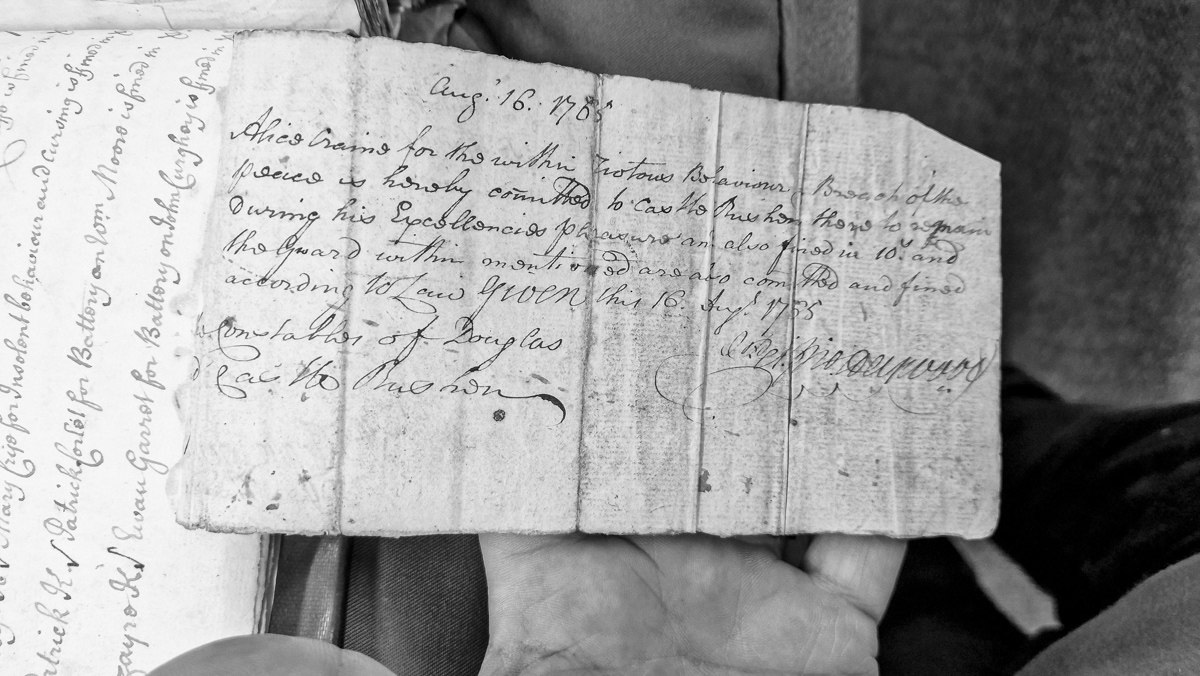 Augt. 16. 1735
Alice Craine for the within riotous Behaviour & Breach of the
peace is hereby comitted to Castle Rushen there to remain
During his Excellencies pleasure and also fined in 10s. and
the Guard within mentioned are also comitted and fined
according to Law Given this 16. Augt. 1735
Constables of Douglas
Castle Rushen
Mary Cryo for Insolent behaviour and cursing is fined in
Patrick K Patrick Corlet for Battery on Tom Moore is fined in
K Ewan Garrot for Battery on John Curghey is fined